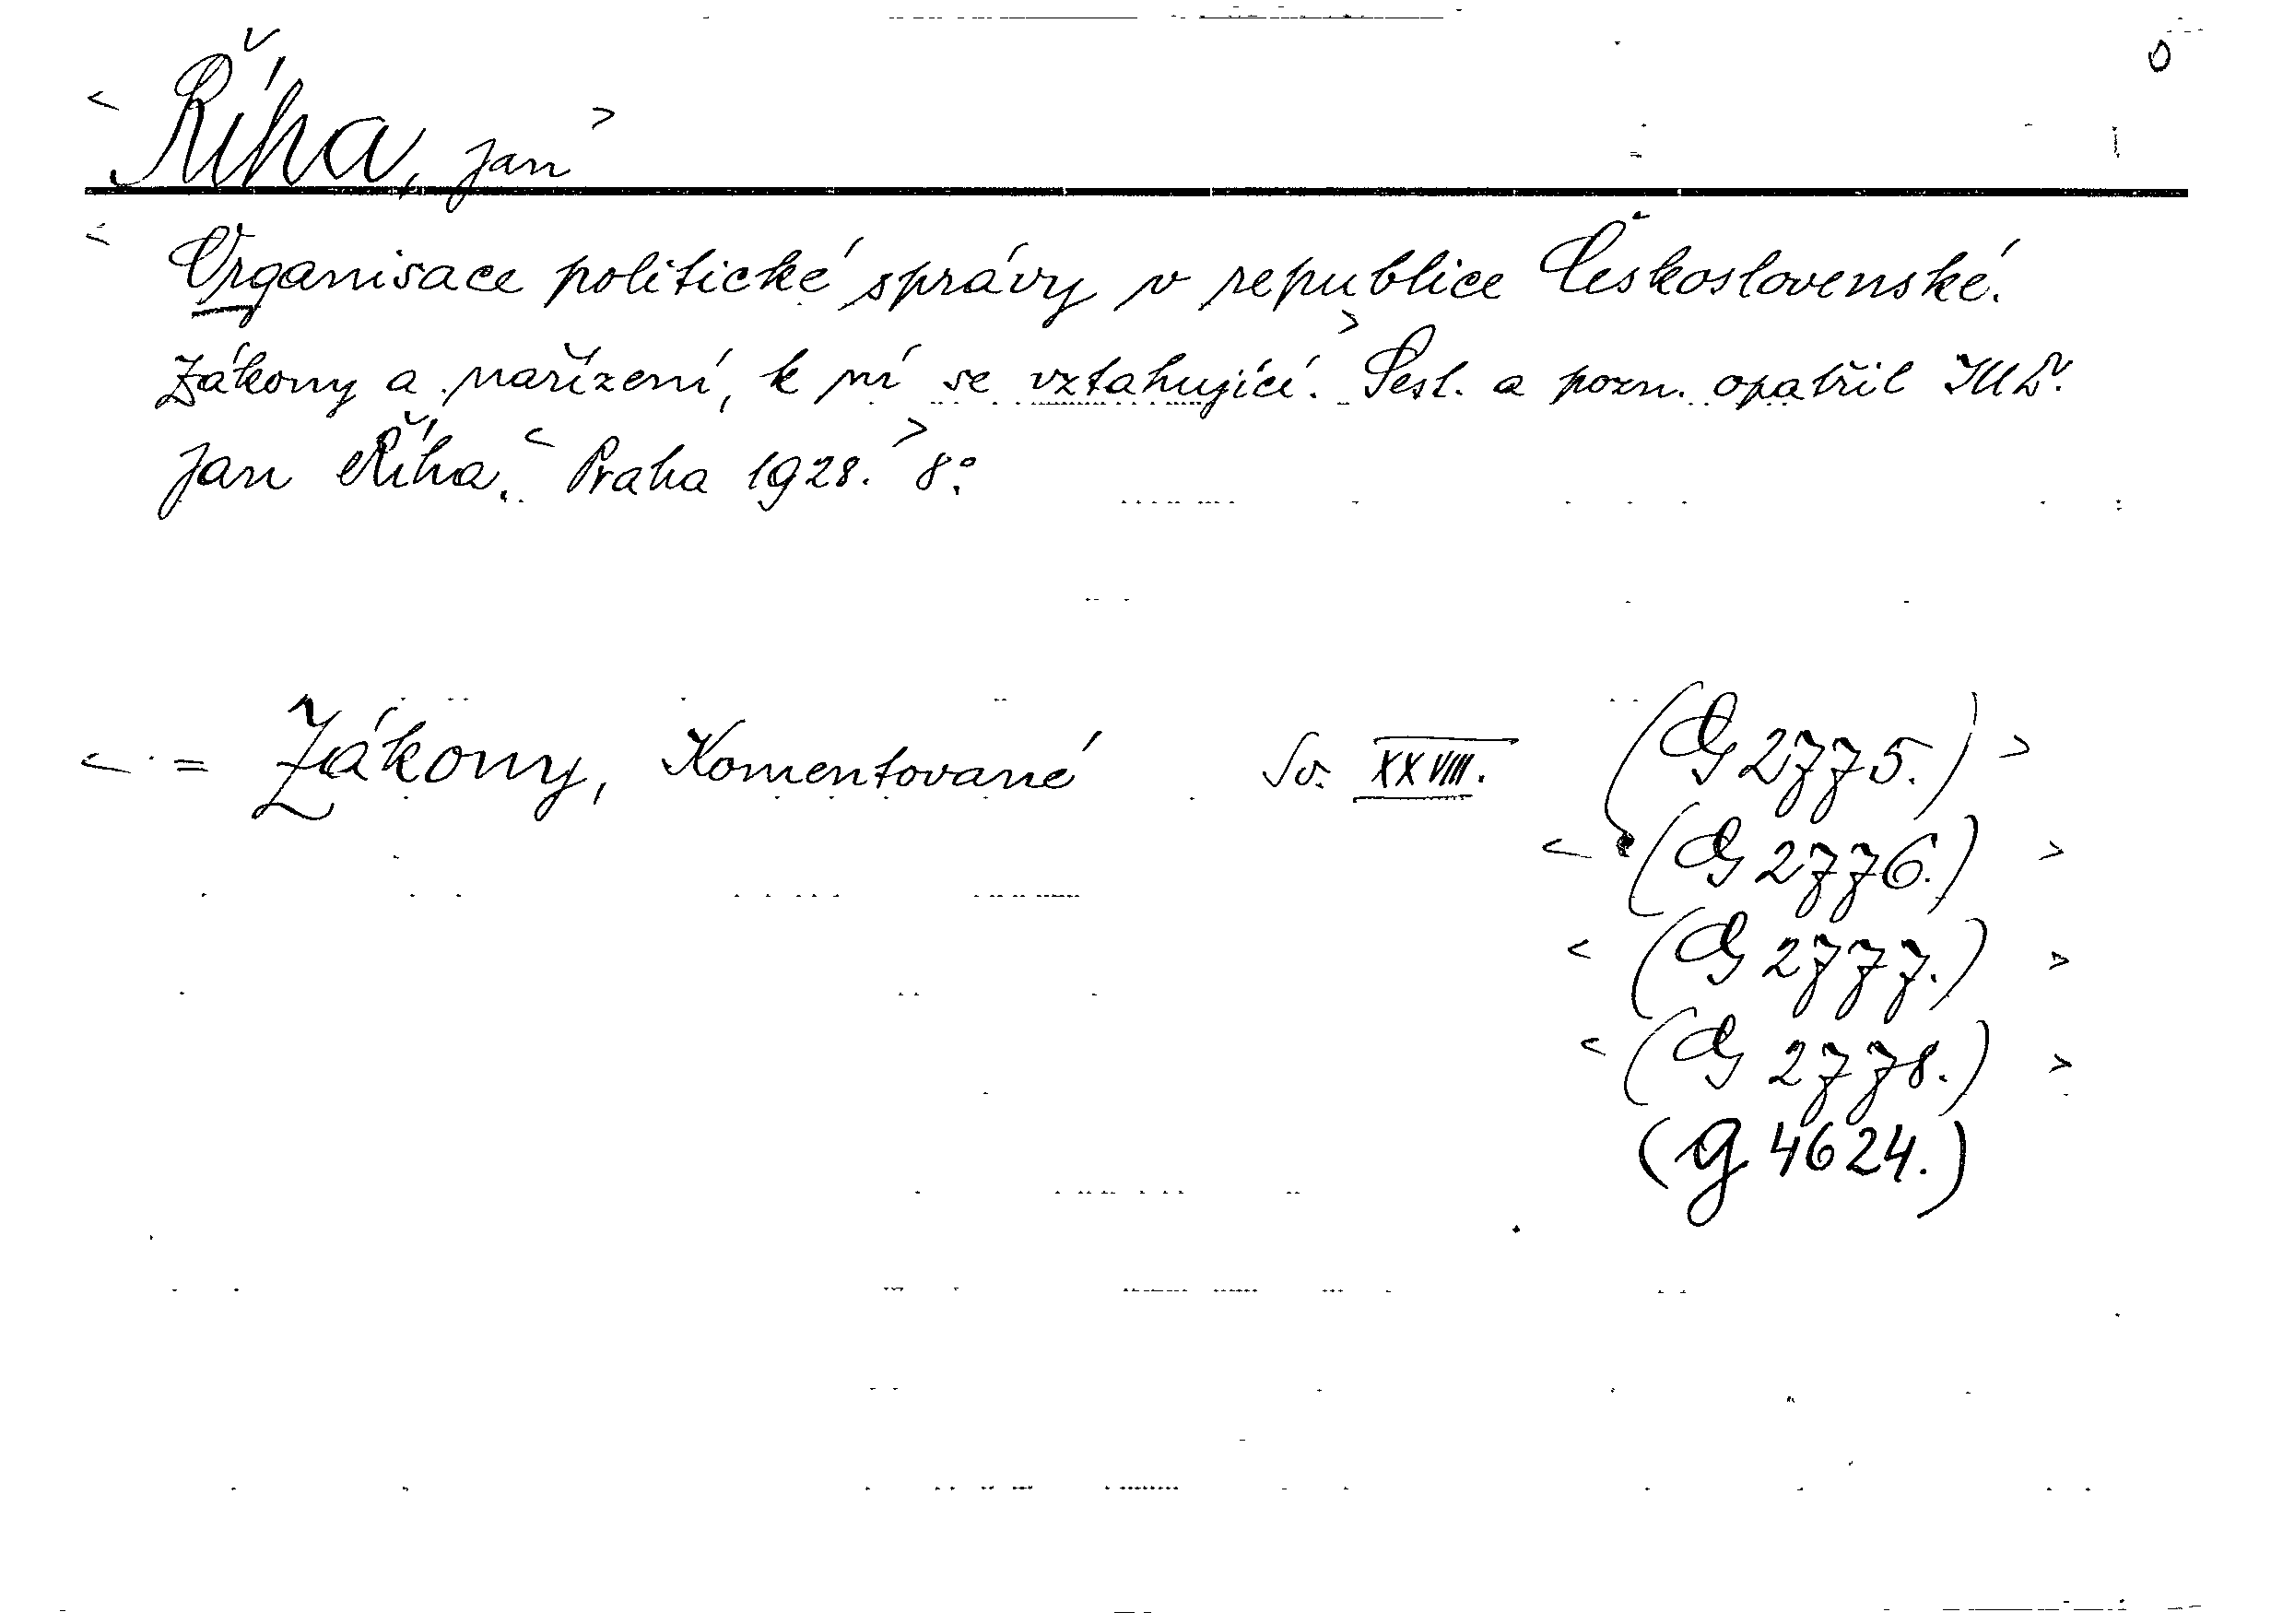 0
< Říha, Jan >
< Organisace politické správy v republice Československé.
Zákony a nařízení, k ní se vztahující. > Sest. a pozn. opatřil JUDr.
Jan Říha. < Praha 1928. > 8°.
< = Zákony, Komentované Sv. XXVIII. (G 2775.) >
< (G 2776.) >
< (G 2777.) >
< (G 2778.) >
(g 4624.)